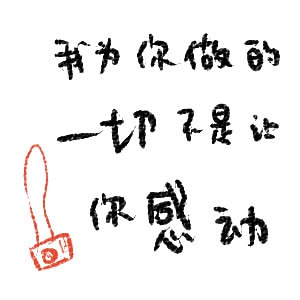 我为你做的
一切不是让
你感动